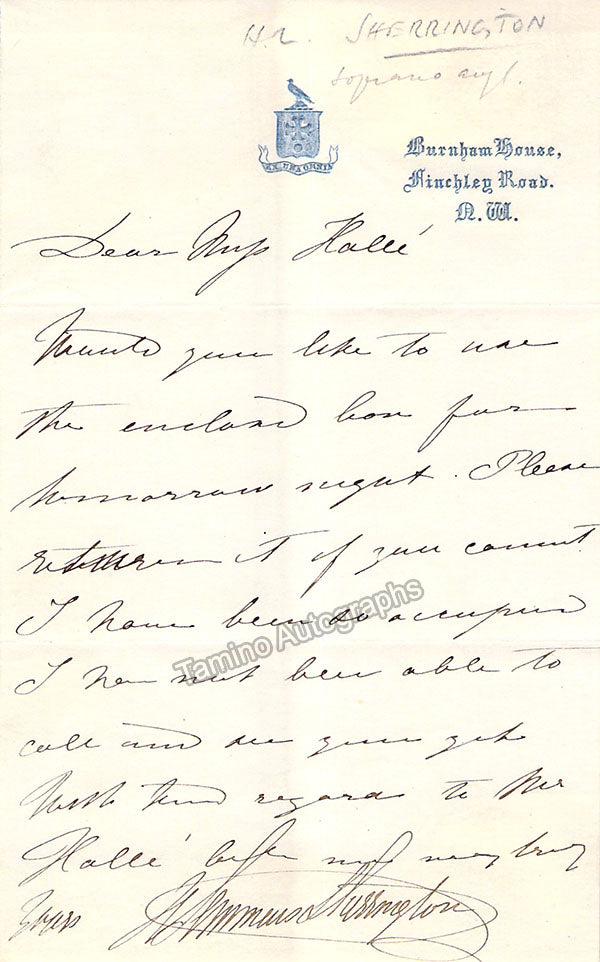 H.L. SHERRINGTON
soprano
EX UNA OMNIA
Burnham House,
Finchley Road.
N.W.
Dear Miss Hallé
Would you like to use
the enclosed box for
tomorrow night. Please
return it if you cannot
I have been so occupied
I have not been able to
call and see you yet
With kind regards to Mr
Hallé believe me very truly
Yours H Lemmens Sherrington
Tamino Autographs